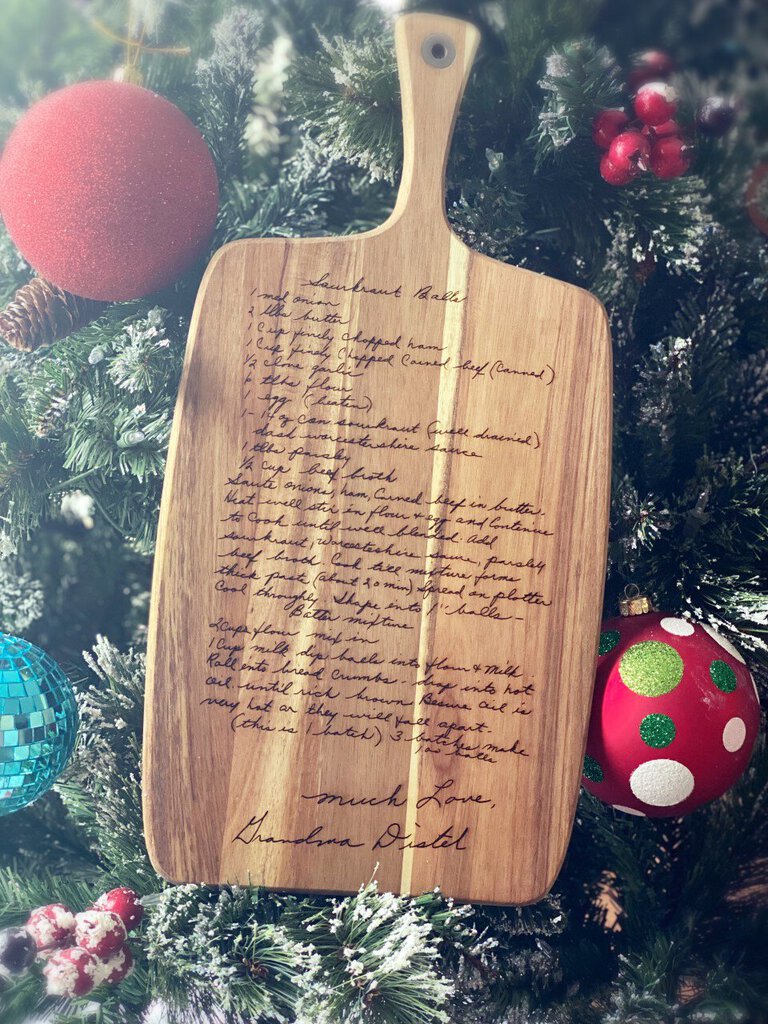 Saurkraut Balls
1 med onion
2 tbls butter
1 Cup finely chopped ham
1 Cup finely Chopped Corned beef (Canned)
1/2 clove garlic
6 tbls flour
1 egg (beaten)
1- 14 oz can saurkraut (well drained)
dash worcestershire sauce
1 tbls parsley
1/2 cup beef broth
Saute onions, ham, Corned beef in butter.
Heat well stir in flour & egg and Continue
to Cook until well blended. Add
saurkraut, Worcestershire sauce, parsley
beef broth. Cook till mixture forms
thick paste (about 20 min) Spread on platter
Cool throughly. Shape into 1" balls -
Batter mixture
2 Cups flour mix in
1 Cup milk dip balls into flour & milk.
Roll into bread crumbs - drop into hot
oil. until rich brown Besure oil is
very hot or they will fall apart.
(this is 1 batch) 3 batches make
100 balls
much Love,
Grandma Distel